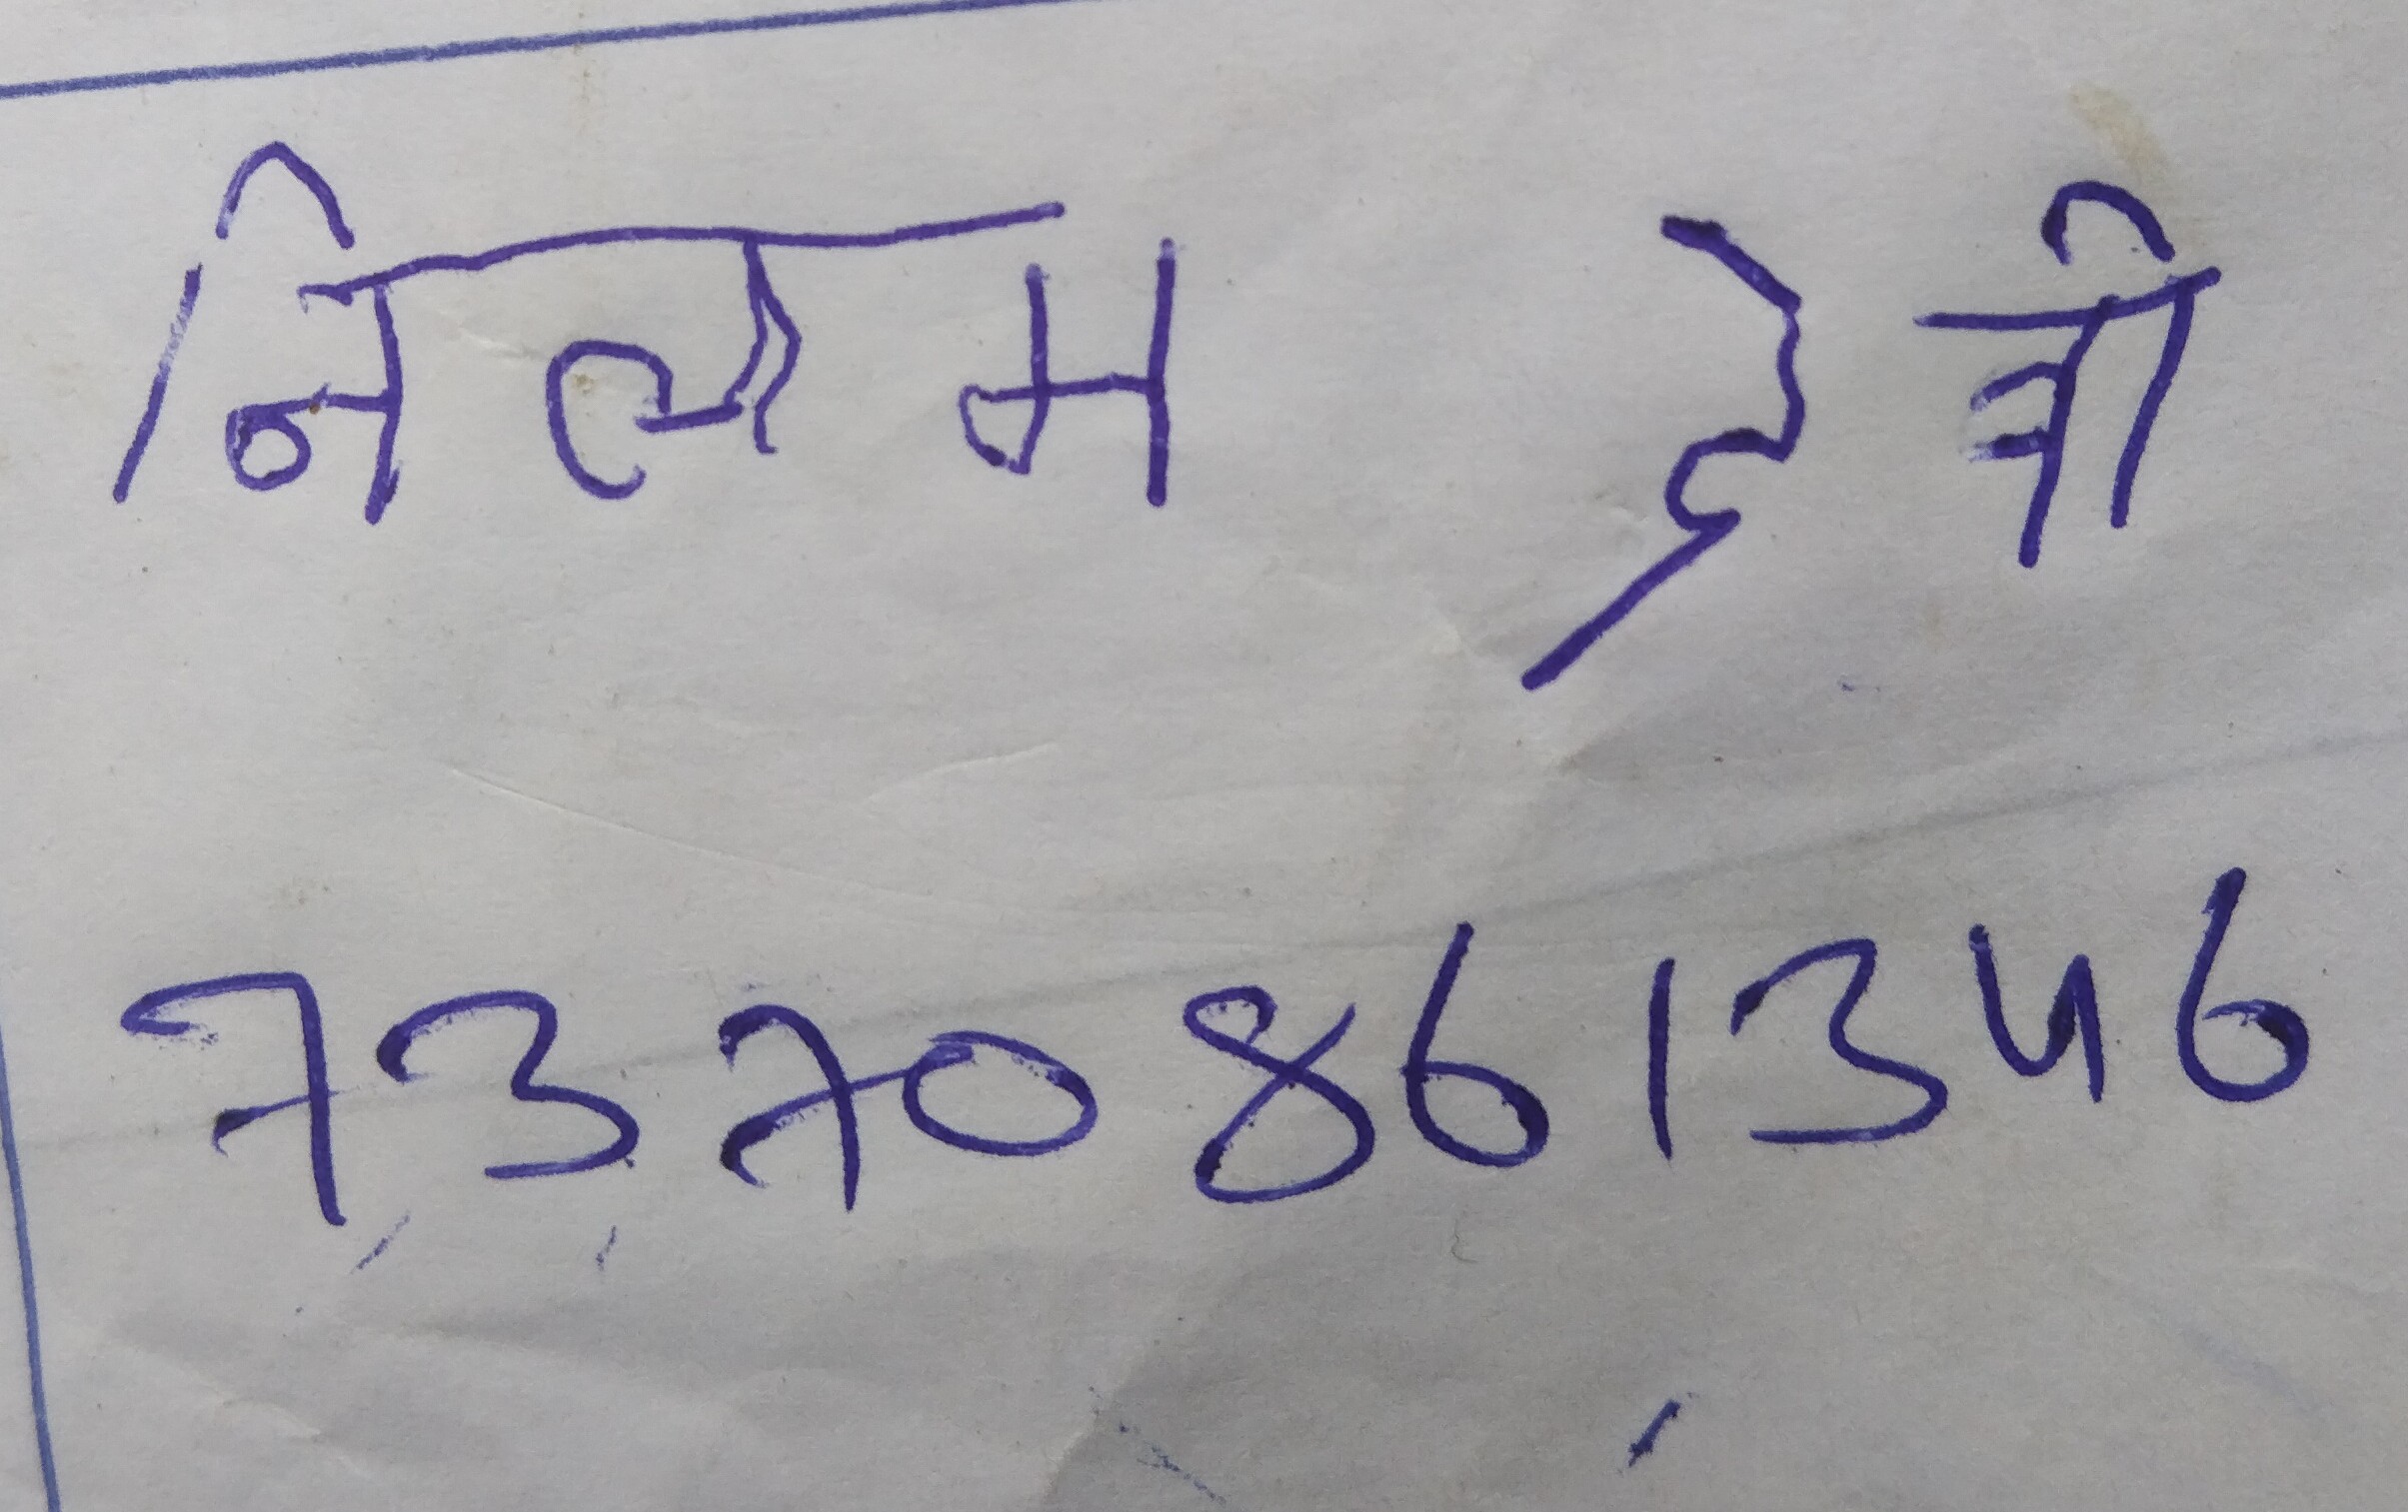 निलम देवी
7370861346